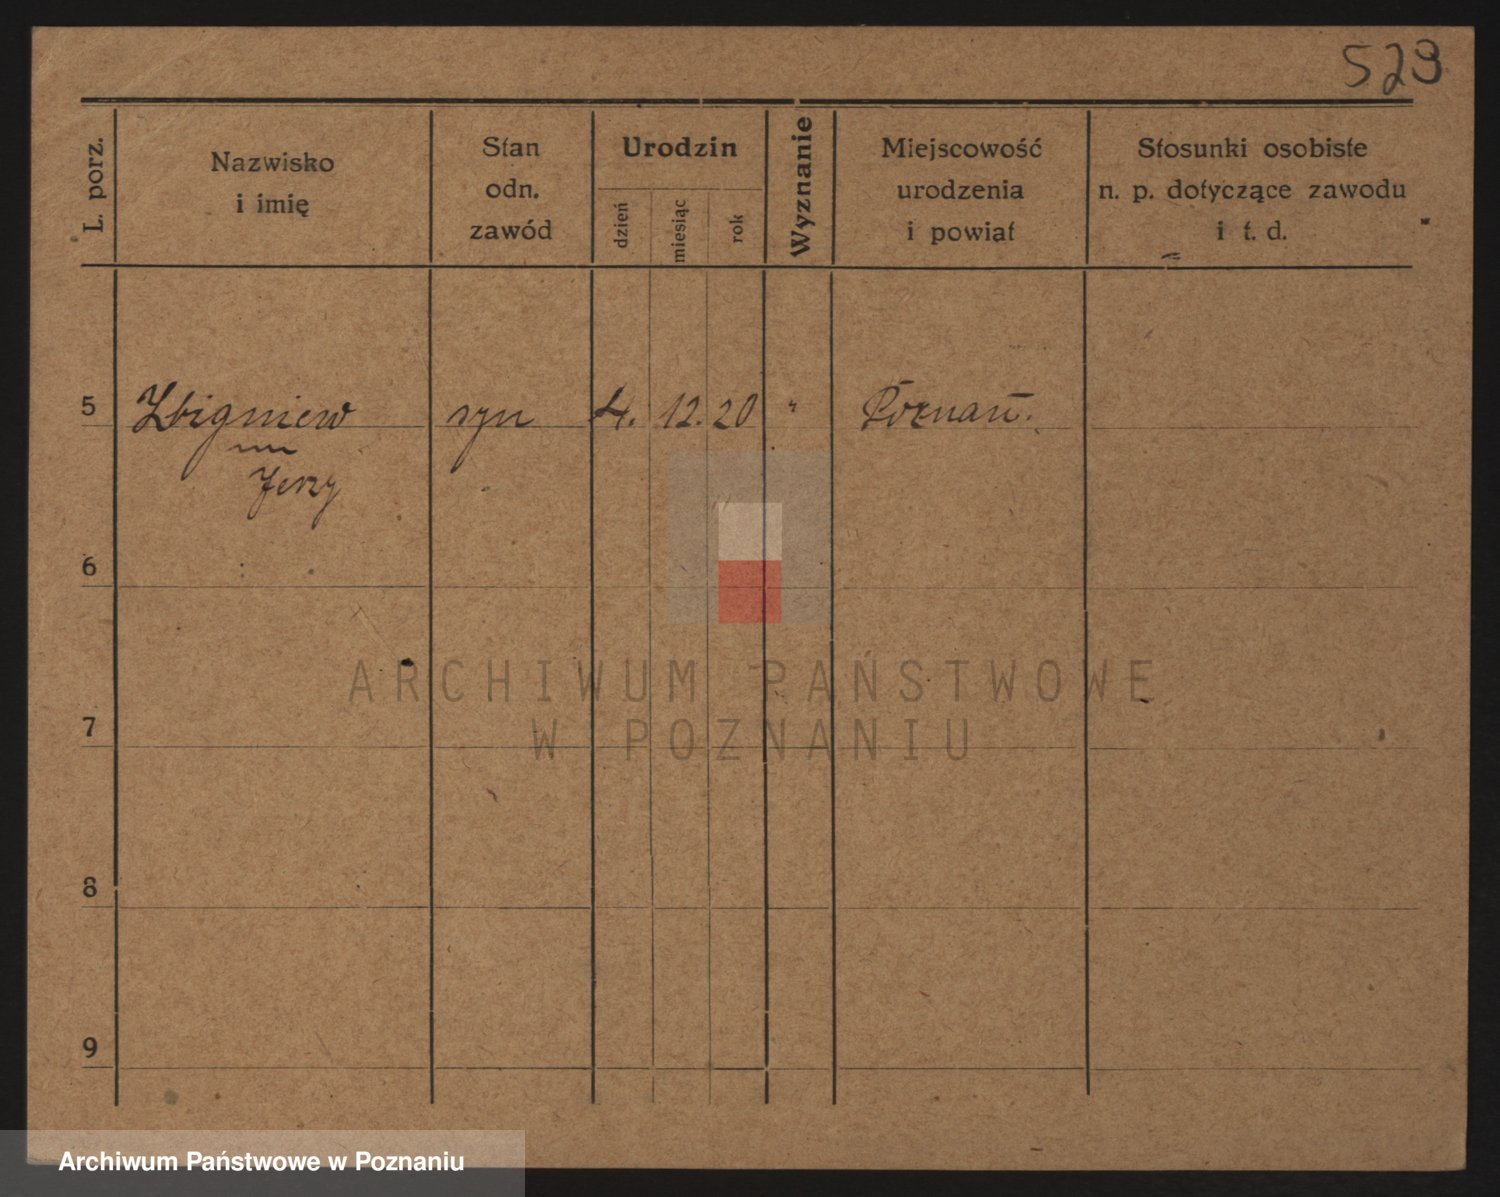 523
L. porz.
Nazwisko
i imię
Stan
odn.
zawód
Urodzin
dzień
miesiąc
rok
Wyznanie
Miejscowość
urodzenia
i powiat
Stosunki osobiste
n. p. dotyczące zawodu
i t. d.
5 Zbigniew syn 4. 12. 20 " Poznań.
Jerzy
6
7
8
9
ARCHIWUM PAŃSTWOWE
W POZNANIU
Archiwum Państwowe w Poznaniu